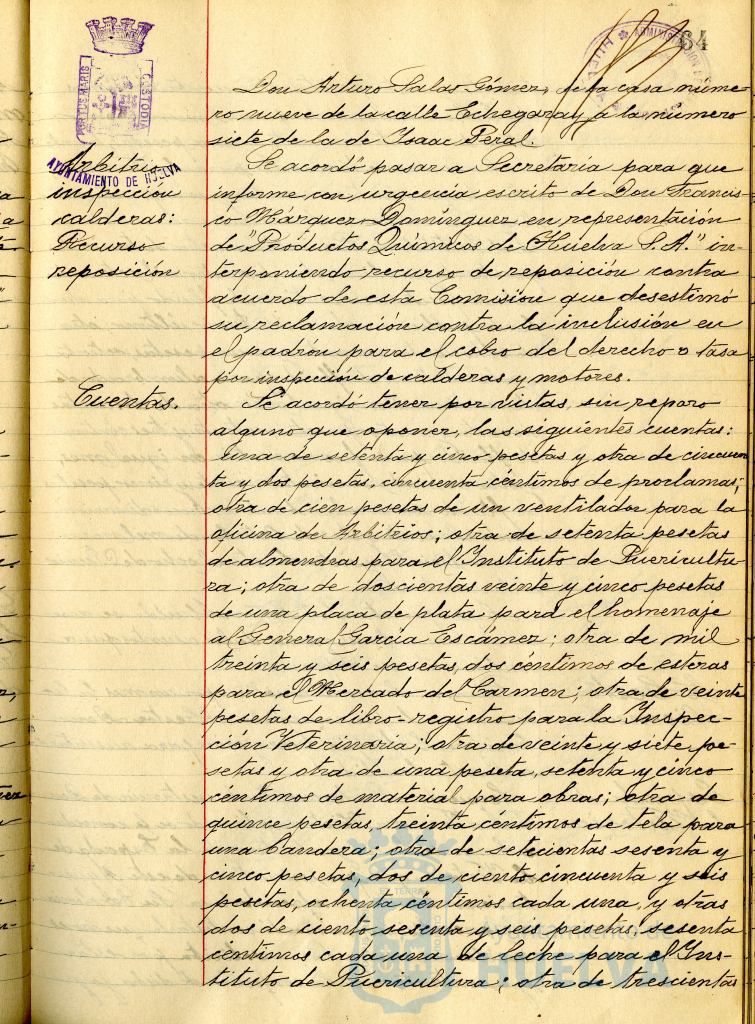 64
PORTUS MARIS
CUSTODIA
AYUNTAMIENTO DE HUELVA
ADMINISTRACION
HUELVA
Don Arturo Salas Gómez, de la casa núme-
ro nueve de la calle Echegaray a la número
siete de la de Isaac Peral.
Arbitrio
inspección
calderas:
Recurso
reposición
Se acordó pasar a Secretaría para que
informe con urgencia escrito de Don Francis-
co Márquez Domínguez en representación
de "Productos Químicos de Huelva S.A." in-
terponiendo recurso de reposición contra
acuerdo de esta Comisión que desestimó
su reclamación contra la inclusión en
el padrón para el cobro del derecho o tasa
por inspección de calderas y motores.
Cuentas.
Se acordó tener por vistas, sin reparo
alguno que oponer, las siguientes cuentas:
una de setenta y cinco pesetas y otra de cincuen
ta y dos pesetas, cincuenta céntimos de proclamas;
otra de cien pesetas de un ventilador para la
oficina de Arbitrios; otra de setenta pesetas
de almendras para el Instituto de Puericultu-
ra; otra de doscientas veinte y cinco pesetas
de una placa de plata para el homenaje
al General García Escámez; otra de mil
treinta y seis pesetas, dos céntimos de esteras
para el Mercado del Carmen; otra de veinte
pesetas de libro-registro para la Inspec-
ción Veterinaria; otra de veinte y siete pe-
setas y otra de una peseta, setenta y cinco
céntimos de material para obras; otra de
quince pesetas, treinta céntimos de tela para
una bandera; otra de setecientas sesenta y
cinco pesetas, dos de ciento cincuenta y seis
pesetas, ochenta céntimos cada una, y otras
dos de ciento sesenta y seis pesetas, sesenta
céntimos cada una de leche para el Ins-
tituto de Puericultura; otra de trescientas
Ayuntamiento de
HUELVA